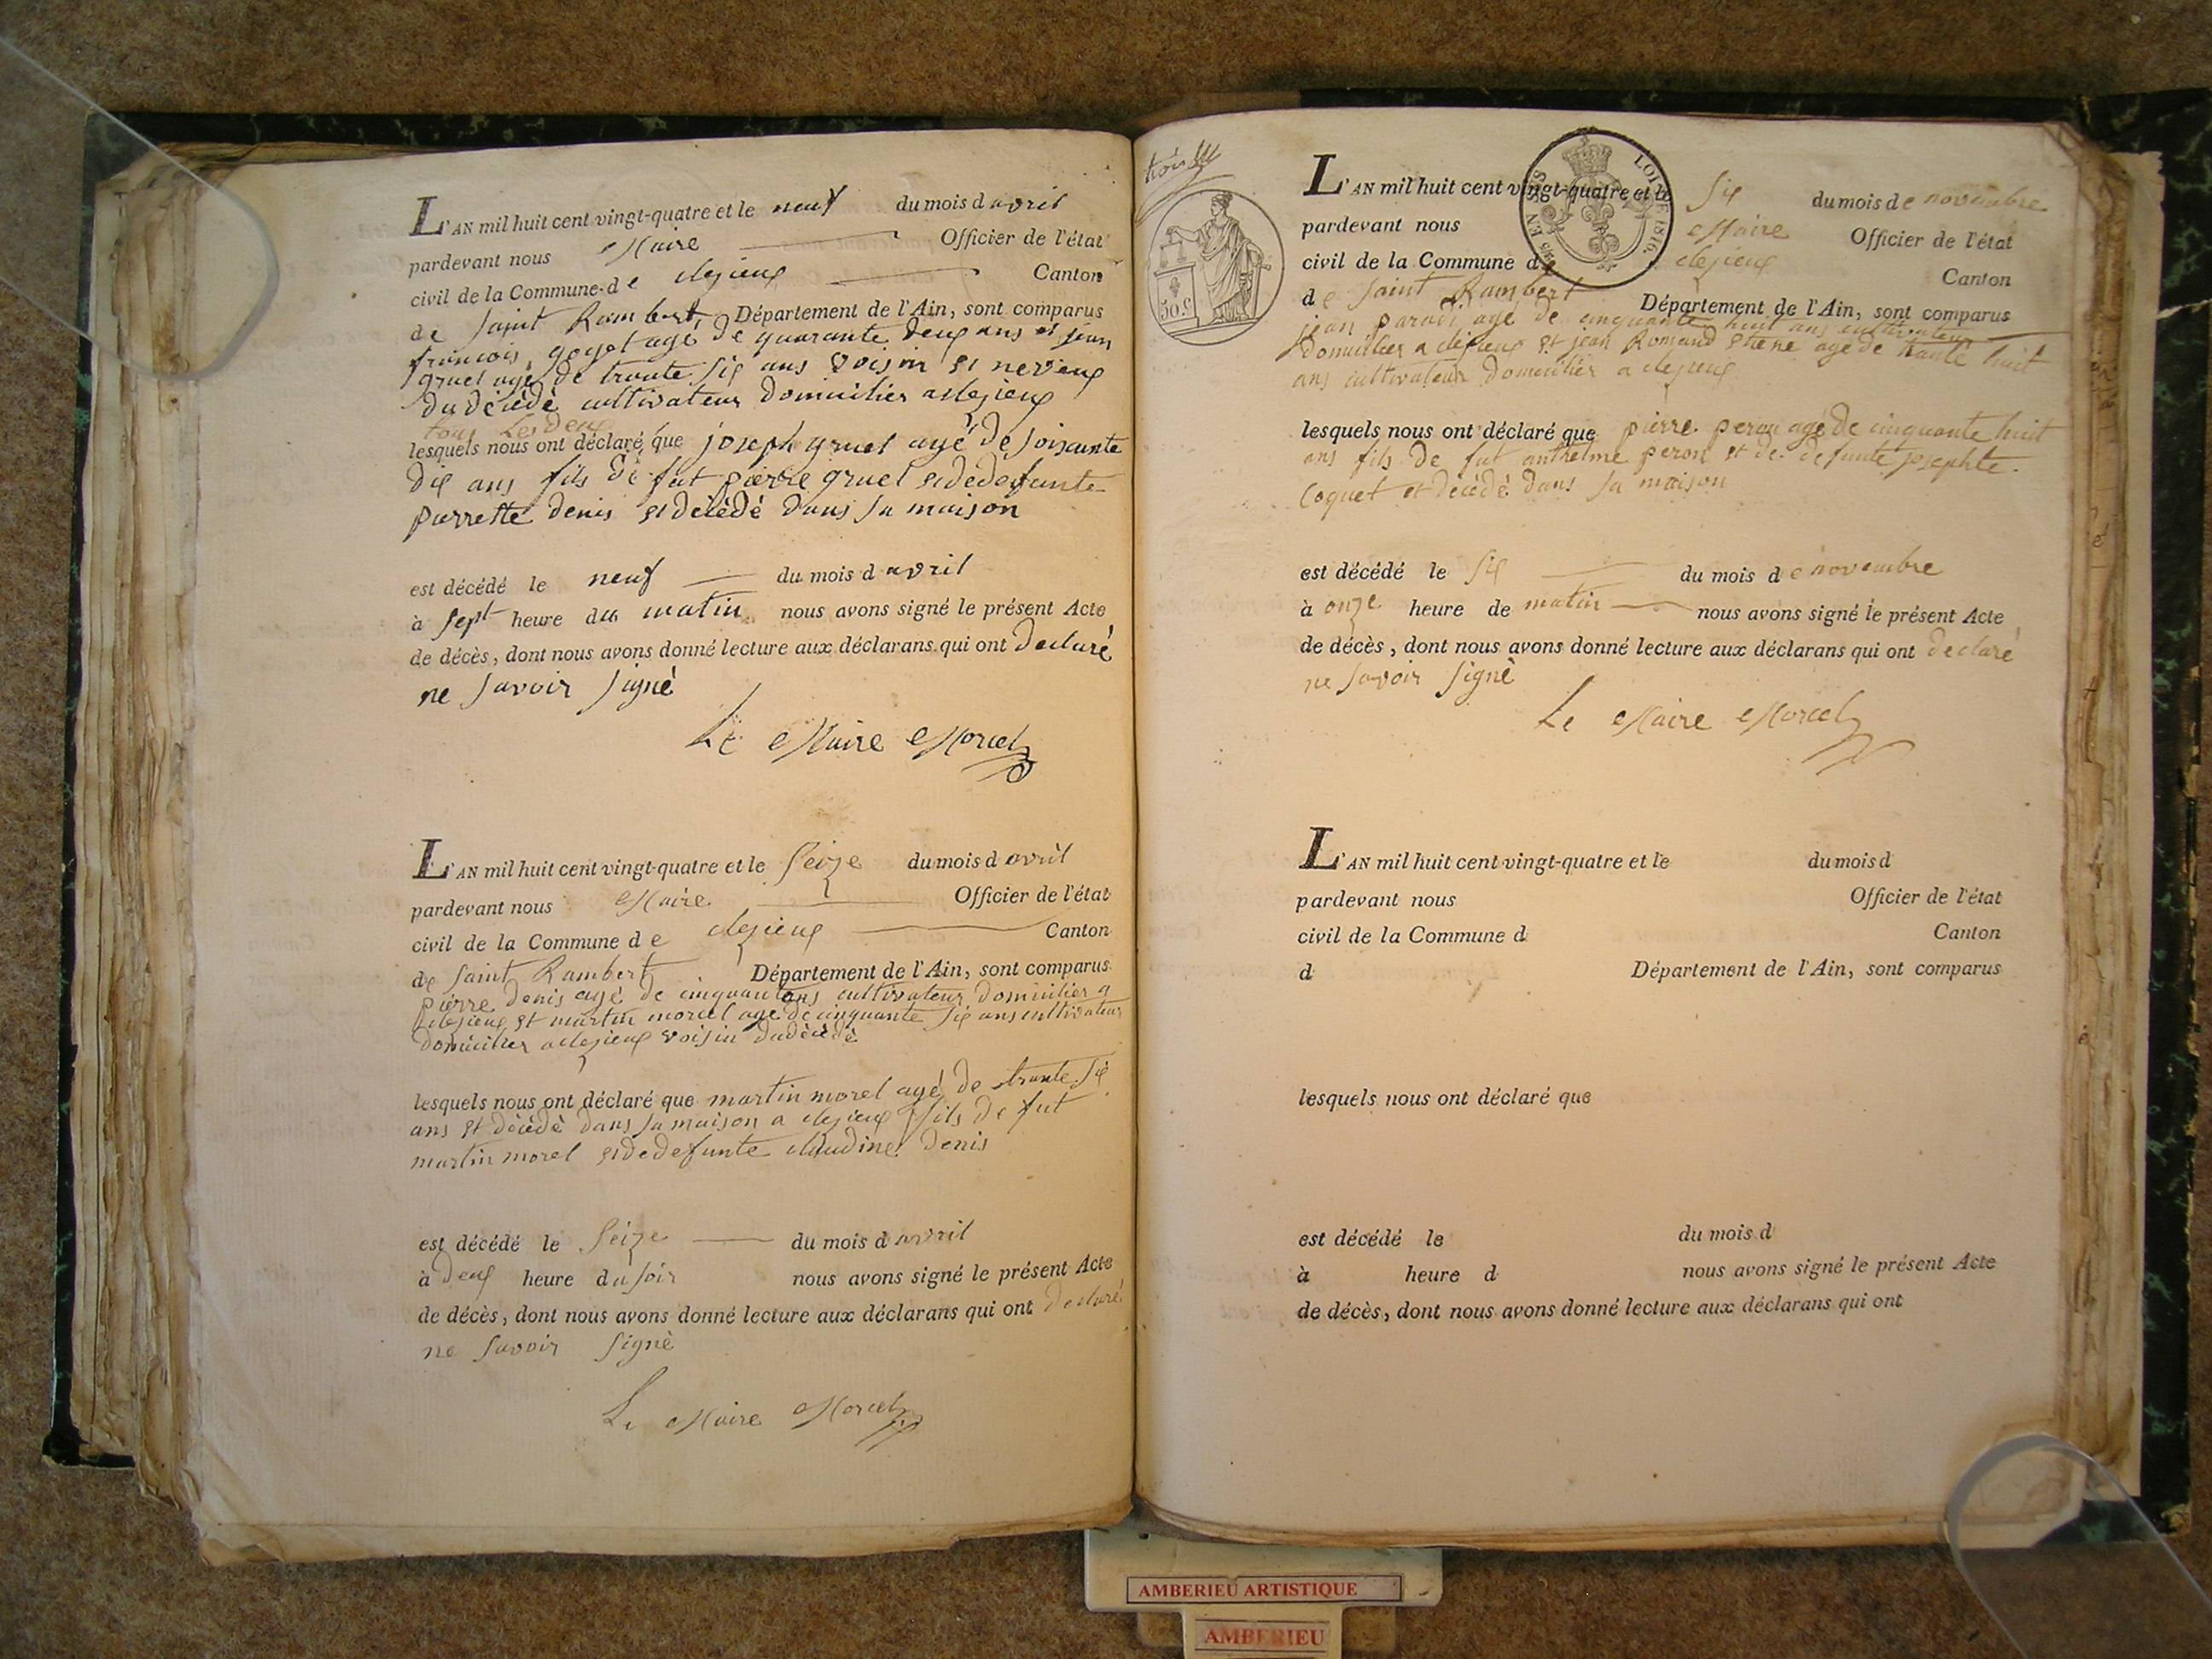 L'AN mil huit cent vingt-quatre et le neuf du mois d avril
pardevant nous Maire Officier de l'état
civil de la Commune de clezieux Canton
de Saint Rambert Département de l'Ain, sont comparus
francois goyet agé de quarante deux ans et jean
gruel agé de trante six ans voisin et neveux
du décédé cultivateur domicilier a clezieux
tous les deux
lesquels nous ont déclaré que joseph gruel agé de soixante
dix ans fils de fut pierre gruel et de defunte
pierrette denis et décédé dans sa maison
est décédé le neuf du mois d avril
à sept heure du matin nous avons signé le présent Acte
de décès, dont nous avons donné lecture aux déclarans qui ont declaré
ne savoir signé
Le Maire Morcel
L'AN mil huit cent vingt-quatre et le seize du mois d avril
pardevant nous Maire Officier de l'état
civil de la Commune de clezieux Canton
de Saint Rambert Département de l'Ain, sont comparus
pierre denis agé de cinquant ans cultivateur domicilier a
clezieux et martin morel agé de cinquante six ans cultivateur
domicilier a clezieux voisin du décédé
lesquels nous ont déclaré que martin morel agé de trante six
ans et décédé dans sa maison a clezieux fils de fut
martin morel et de defunte claudine denis
est décédé le seize du mois d avril
à deux heure du soir nous avons signé le présent Acte
de décès, dont nous avons donné lecture aux déclarans qui ont declaré
ne savoir signé
Le Maire Morcel
trois
50 c.
LOI DE 1816.
L'AN mil huit cent vingt-quatre et le six du mois de novembre
pardevant nous Maire Officier de l'état
civil de la Commune de clezieux Canton
de Saint Rambert Département de l'Ain, sont comparus
jean paradi agé de cinquante huit ans cultivateur
domicilier a clezieux et jean Romand agé de trante huit
ans cultivateur domicilier a clezieux
lesquels nous ont déclaré que pierre peron agé de cinquante huit
ans fils de fut anthelme peron et de defunte josephte
Coquet et décédé dans sa maison
est décédé le six du mois de novembre
à onze heure de matin nous avons signé le présent Acte
de décès, dont nous avons donné lecture aux déclarans qui ont declaré
ne savoir signé
Le Maire Morcel
L'AN mil huit cent vingt-quatre et le du mois d
pardevant nous Officier de l'état
civil de la Commune d Canton
d Département de l'Ain, sont comparus
lesquels nous ont déclaré que
est décédé le du mois d
à heure d nous avons signé le présent Acte
de décès, dont nous avons donné lecture aux déclarans qui ont
AMBERIEU ARTISTIQUE
AMBERIEU